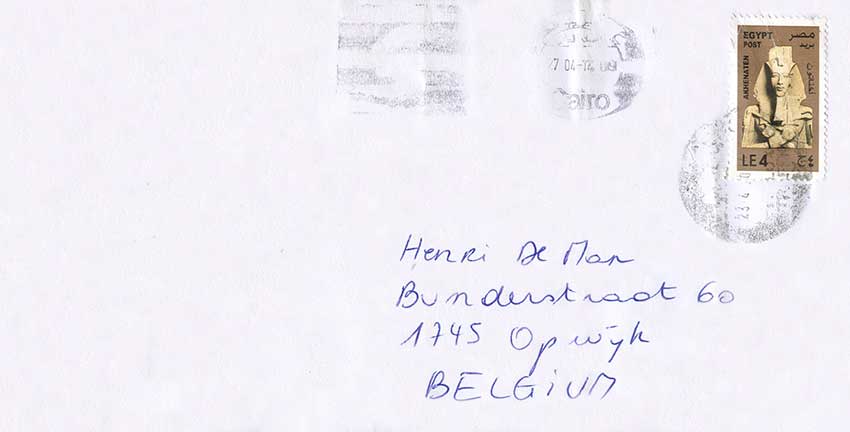 7 04-14
Cairo
EGYPT
POST
مصر
بريد
AKHENATEN
اخناتون
LE 4
٤ ج
23 4
Henri De Man
Bunderstraat 60
1745 Opwijk
BELGIUM